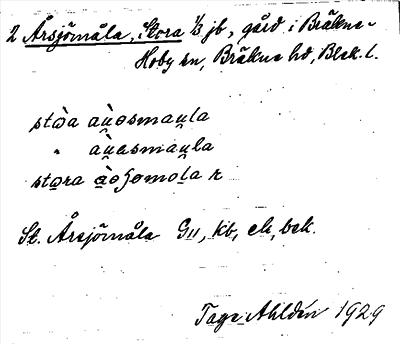 2 Årsjömåla, Stora 1/3 jb, gård i Bräkne-
Hoby sn, Bräkne hd, Blek. l.
stꙍ̀a aù̯osmau̯la
" aù̯asmau̯la
stora
St. Årsjömåla G11, kb, ek, bsk.
Tage Ahldén 1929